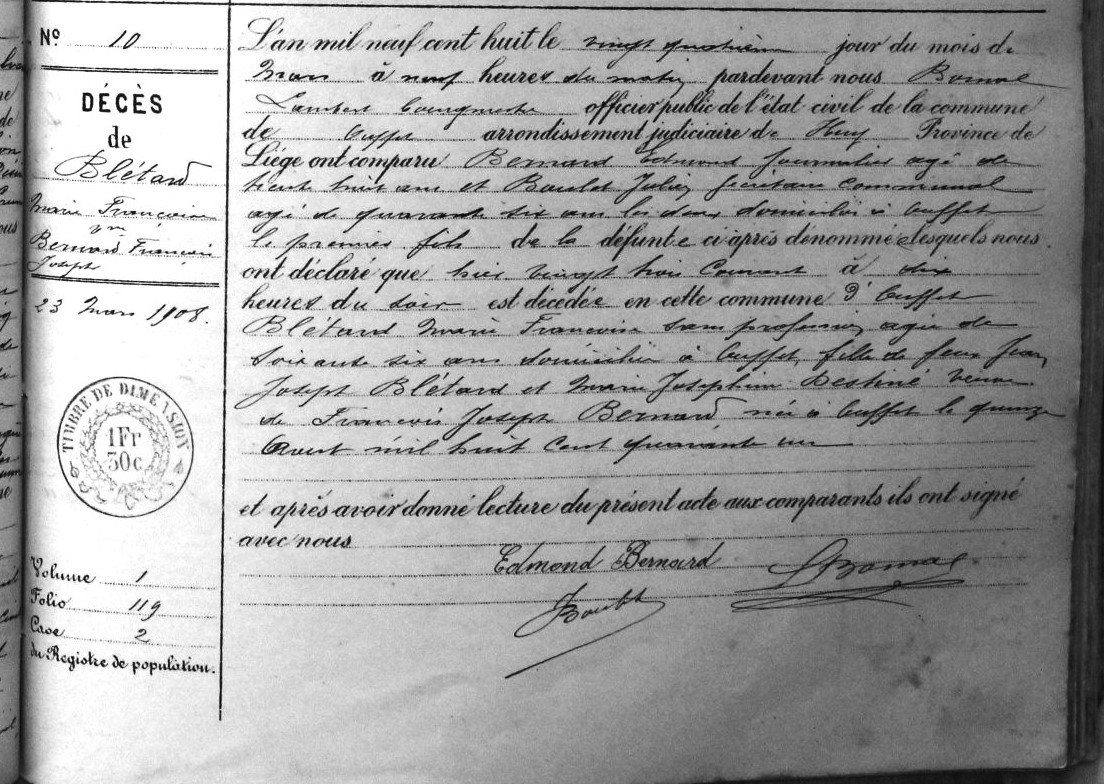 Nº 10
DÉCÈS
de
Blétard
Marie Françoise
Bernard François
Joseph
23 Mars 1908.
TIMBRE DE DIMENSION
1Fr
30c
Volume 1
Folio 119
Case 2
du Registre de population.
L'an mil neuf cent huit le vingt quatrième jour du mois de
Mars à neuf heures du matin pardevant nous Bomal
Lambert bourgmestre officier public de l'état civil de la commune
de Ouffet arrondissement judiciaire de Huy Province de
Liége ont comparu Bernard Edmond journalier agé de
trente huit ans et Boulet Julien secrétaire communal
agé de quarante six ans les deux domiciliés à Ouffet
le premier fils de la défunte ci après dénommée lesquels nous
ont déclaré que hier vingt trois courant à dix
heures du soir est décédée en cette commune d'Ouffet
Blétard Marie Françoise sans profession agée de
soixante six ans domiciliée à Ouffet, fille de feux Jean
Joseph Blétard et Marie Josephine Destiné veuve
de François Joseph Bernard, née à Ouffet le quinze
Aout mil huit cent quarante un
et après avoir donné lecture du présent acte aux comparants ils ont signé
avec nous
Edmond Bernard LBomal
JBoulet